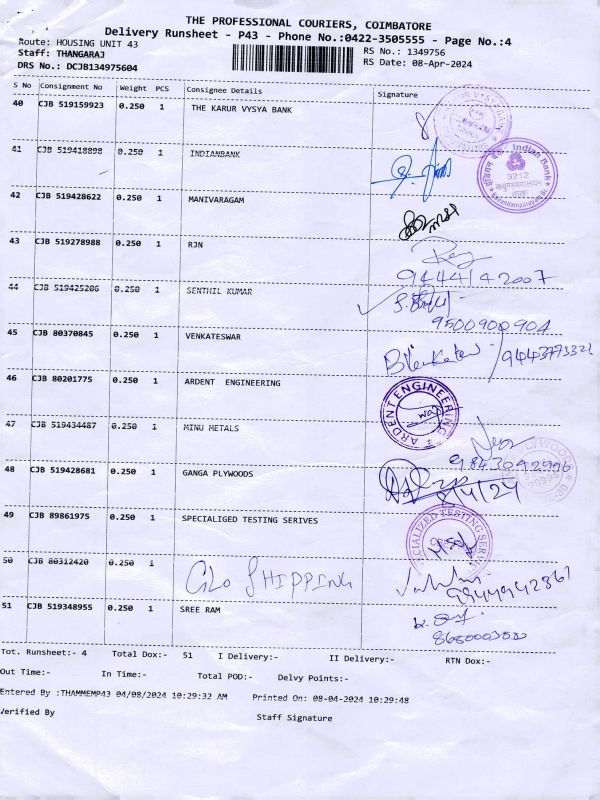 THE PROFESSIONAL COURIERS, COIMBATORE
Delivery Runsheet - P43 - Phone No.:0422-3505555 - Page No.:4
Route: HOUSING UNIT 43
RS No.: 1349756
Staff: THANGARAJ
RS Date: 08-Apr-2024
DRS No.: DCJB134975604
S No Consignment No Weight PCS Consignee Details Signature
40 CJB 519159923 0.250 1 THE KARUR VYSYA BANK
41 CJB 519418898 0.250 1 INDIANBANK
Indian Bank
3212
42 CJB 519428622 0.250 1 MANIVARAGAM
43 CJB 519278988 0.250 1 RJN
9444142007
44 CJB 519425206 0.250 1 SENTHIL KUMAR
9500900904
45 CJB 80370845 0.250 1 VENKATESWAR
9443773321
46 CJB 80201775 0.250 1 ARDENT ENGINEERING
ARDENT ENGINEERING
47 CJB 519434487 0.250 1 MINU METALS
9843092996
48 CJB 519428681 0.250 1 GANGA PLYWOODS
8/4/24
49 CJB 89861975 0.250 1 SPECIALIGED TESTING SERIVES
50 CJB 80312420 0.250 1 GLO SHIPPING
51 CJB 519348955 0.250 1 SREE RAM
Tot. Runsheet:- 4 Total Dox:- 51 I Delivery:- II Delivery:- RTN Dox:-
Out Time:- In Time:- Total POD:- Delvy Points:-
Entered By :THAMMEMP43 04/08/2024 10:29:32 AM Printed On: 08-04-2024 10:29:48
Verified By
Staff Signature